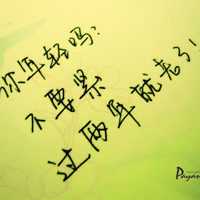 你年轻吗?
不要紧
过两年就老了!
Payan